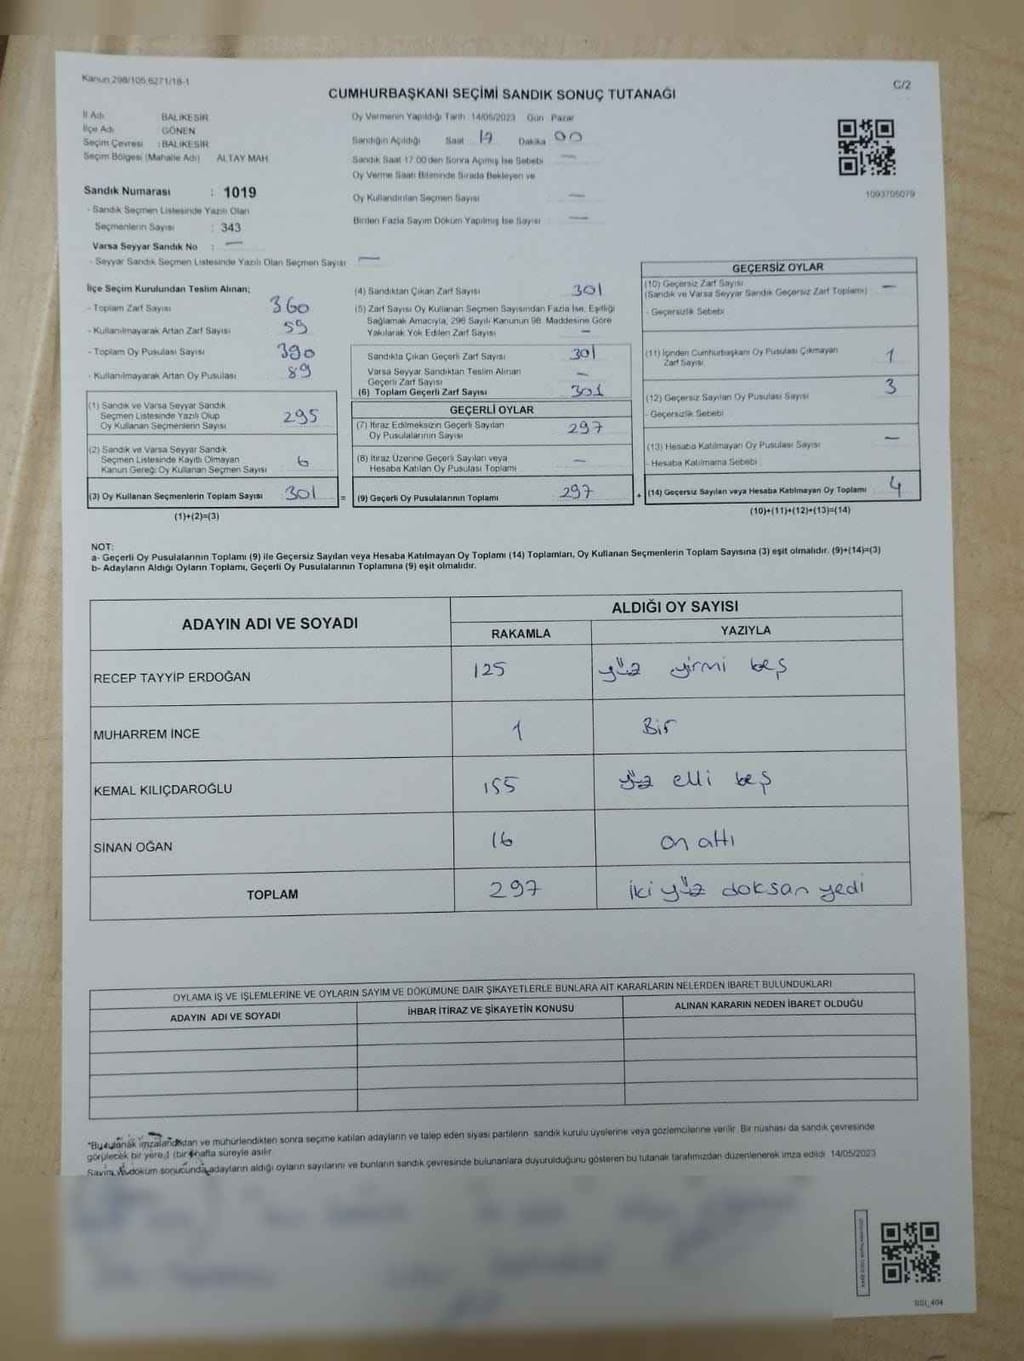 Kanun 298/105,6271/18-1
C/2
CUMHURBAŞKANI SEÇİMİ SANDIK SONUÇ TUTANAĞI
İl Adı BALIKESİR
İlçe Adı : GÖNEN
Seçim Çevresi : BALIKESİR
Seçim Bölgesi (Mahalle Adı) ALTAY MAH.
Sandık Numarası : 1019
- Sandık Seçmen Listesinde Yazılı Olan
Seçmenlerin Sayısı : 343
Varsa Seyyar Sandık No : —
- Seyyar Sandık Seçmen Listesinde Yazılı Olan Seçmen Sayısı —
Oy Vermenin Yapıldığı Tarih 14/05/2023 Gün Pazar
Sandığın Açıldığı Saat 17 Dakika 00
Sandık Saat 17.00'den Sonra Açılmış İse Sebebi —
Oy Verme Saati Bitiminde Sırada Bekleyen ve
Oy Kullandırılan Seçmen Sayısı —
Birden Fazla Sayım Döküm Yapılmış İse Sayısı —
1093705079
İlçe Seçim Kurulundan Teslim Alınan;
- Toplam Zarf Sayısı 360
- Kullanılmayarak Artan Zarf Sayısı 59
- Toplam Oy Pusulası Sayısı 390
- Kullanılmayarak Artan Oy Pusulası 89
(1) Sandık ve Varsa Seyyar Sandık
Seçmen Listesinde Yazılı Olup
Oy Kullanan Seçmenlerin Sayısı 295
(2) Sandık ve Varsa Seyyar Sandık
Seçmen Listesinde Kayıtlı Olmayan
Kanun Gereği Oy Kullanan Seçmen Sayısı 6
(3) Oy Kullanan Seçmenlerin Toplam Sayısı 301 =
(1)+(2)=(3)
(4) Sandıktan Çıkan Zarf Sayısı 301
(5) Zarf Sayısı Oy Kullanan Seçmen Sayısından Fazla İse, Eşitliği
Sağlamak Amacıyla, 298 Sayılı Kanunun 98. Maddesine Göre
Yakılarak Yok Edilen Zarf Sayısı —
Sandıkta Çıkan Geçerli Zarf Sayısı 301
Varsa Seyyar Sandıktan Teslim Alınan
Geçerli Zarf Sayısı —
(6) Toplam Geçerli Zarf Sayısı 301
GEÇERLİ OYLAR
(7) İtiraz Edilmeksizin Geçerli Sayılan
Oy Pusulalarının Sayısı 297
(8) İtiraz Üzerine Geçerli Sayılan veya
Hesaba Katılan Oy Pusulası Toplamı —
(9) Geçerli Oy Pusulalarının Toplamı 297 +
GEÇERSİZ OYLAR
(10) Geçersiz Zarf Sayısı
(Sandık ve Varsa Seyyar Sandık Geçersiz Zarf Toplamı) —
- Geçersizlik Sebebi
(11) İçinden Cumhurbaşkanı Oy Pusulası Çıkmayan
Zarf Sayısı 1
(12) Geçersiz Sayılan Oy Pusulası Sayısı 3
- Geçersizlik Sebebi
(13) Hesaba Katılmayan Oy Pusulası Sayısı —
- Hesaba Katılmama Sebebi
(14) Geçersiz Sayılan veya Hesaba Katılmayan Oy Toplamı 4
(10)+(11)+(12)+(13)=(14)
NOT:
a- Geçerli Oy Pusulalarının Toplamı (9) ile Geçersiz Sayılan veya Hesaba Katılmayan Oy Toplamı (14) Toplamları, Oy Kullanan Seçmenlerin Toplam Sayısına (3) eşit olmalıdır. (9)+(14)=(3)
b- Adayların Aldığı Oyların Toplamı, Geçerli Oy Pusulalarının Toplamına (9) eşit olmalıdır.
ADAYIN ADI VE SOYADI
ALDIĞI OY SAYISI
RAKAMLA YAZIYLA
RECEP TAYYİP ERDOĞAN 125 yüz yirmi beş
MUHARREM İNCE 1 Bir
KEMAL KILIÇDAROĞLU 155 yüz elli beş
SİNAN OĞAN 16 on altı
TOPLAM 297 iki yüz doksan yedi
OYLAMA İŞ VE İŞLEMLERİNE VE OYLARIN SAYIM VE DÖKÜMÜNE DAİR ŞİKAYETLERLE BUNLARA AİT KARARLARIN NELERDEN İBARET BULUNDUKLARI
ADAYIN ADI VE SOYADI İHBAR İTİRAZ VE ŞİKAYETİN KONUSU ALINAN KARARIN NEDEN İBARET OLDUĞU
*Bu tutanak imzalandıktan ve mühürlendikten sonra seçime katılan adayların ve talep eden siyasi partilerin sandık kurulu üyelerine veya gözlemcilerine verilir. Bir nüshası da sandık çevresinde
görülecek bir yere 1 (bir) hafta süreyle asılır.
Sayım ve döküm sonucunda adayların aldığı oyların sayılarını ve bunların sandık çevresinde bulunanlara duyurulduğunu gösteren bu tutanak tarafımızdan düzenlenerek imza edildi. 14/05/2023